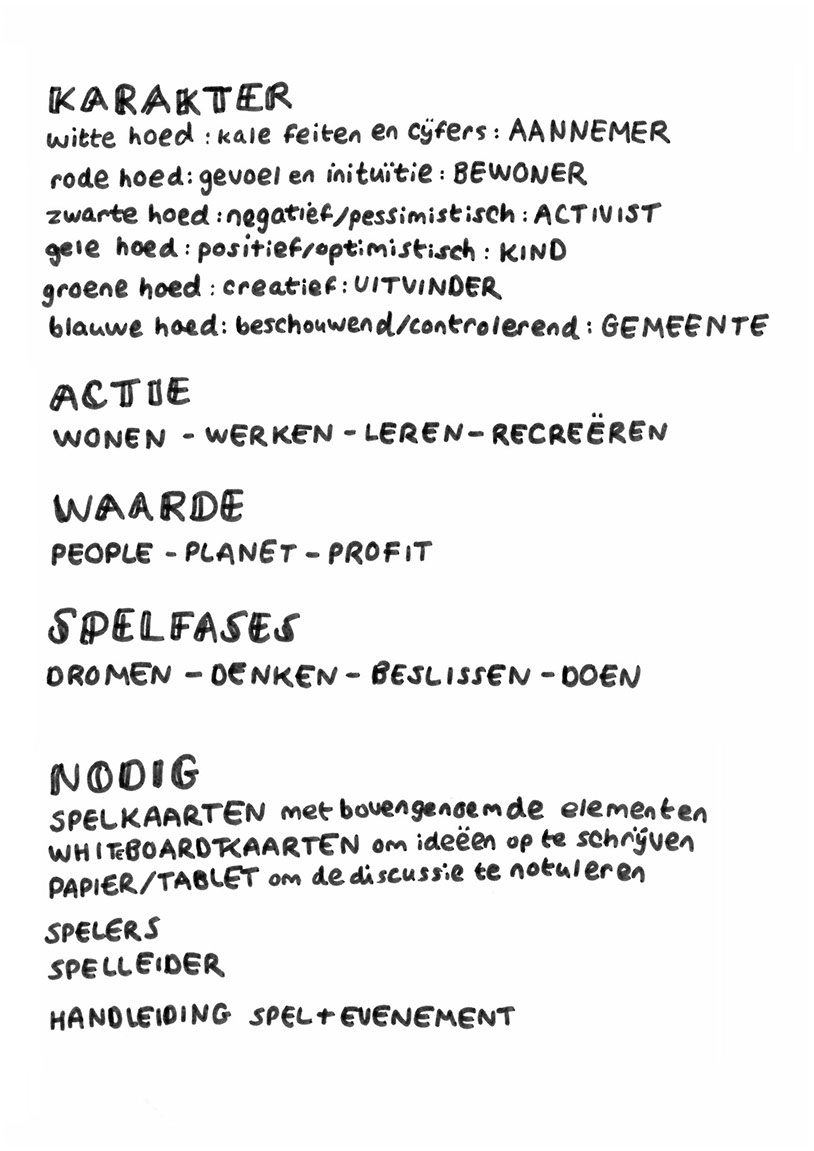 KARAKTER
witte hoed : kale feiten en cijfers : AANNEMER
rode hoed : gevoel en inituïtie : BEWONER
zwarte hoed : negatief/pessimistisch : ACTIVIST
gele hoed : positief/optimistisch : KIND
groene hoed : creatief : UITVINDER
blauwe hoed : beschouwend/controlerend : GEMEENTE
ACTIE
WONEN - WERKEN - LEREN - RECREËREN
WAARDE
PEOPLE - PLANET - PROFIT
SPELFASES
DROMEN - DENKEN - BESLISSEN - DOEN
NODIG
SPELKAARTEN met bovengenoemde elementen
WHITeBOARDTKAARTEN om ideëën op te schrijven
PAPIER/TABLET om de discussie te notuleren
SPELERS
SPELLEIDER
HANDLEIDING SPEL + EVENEMENT